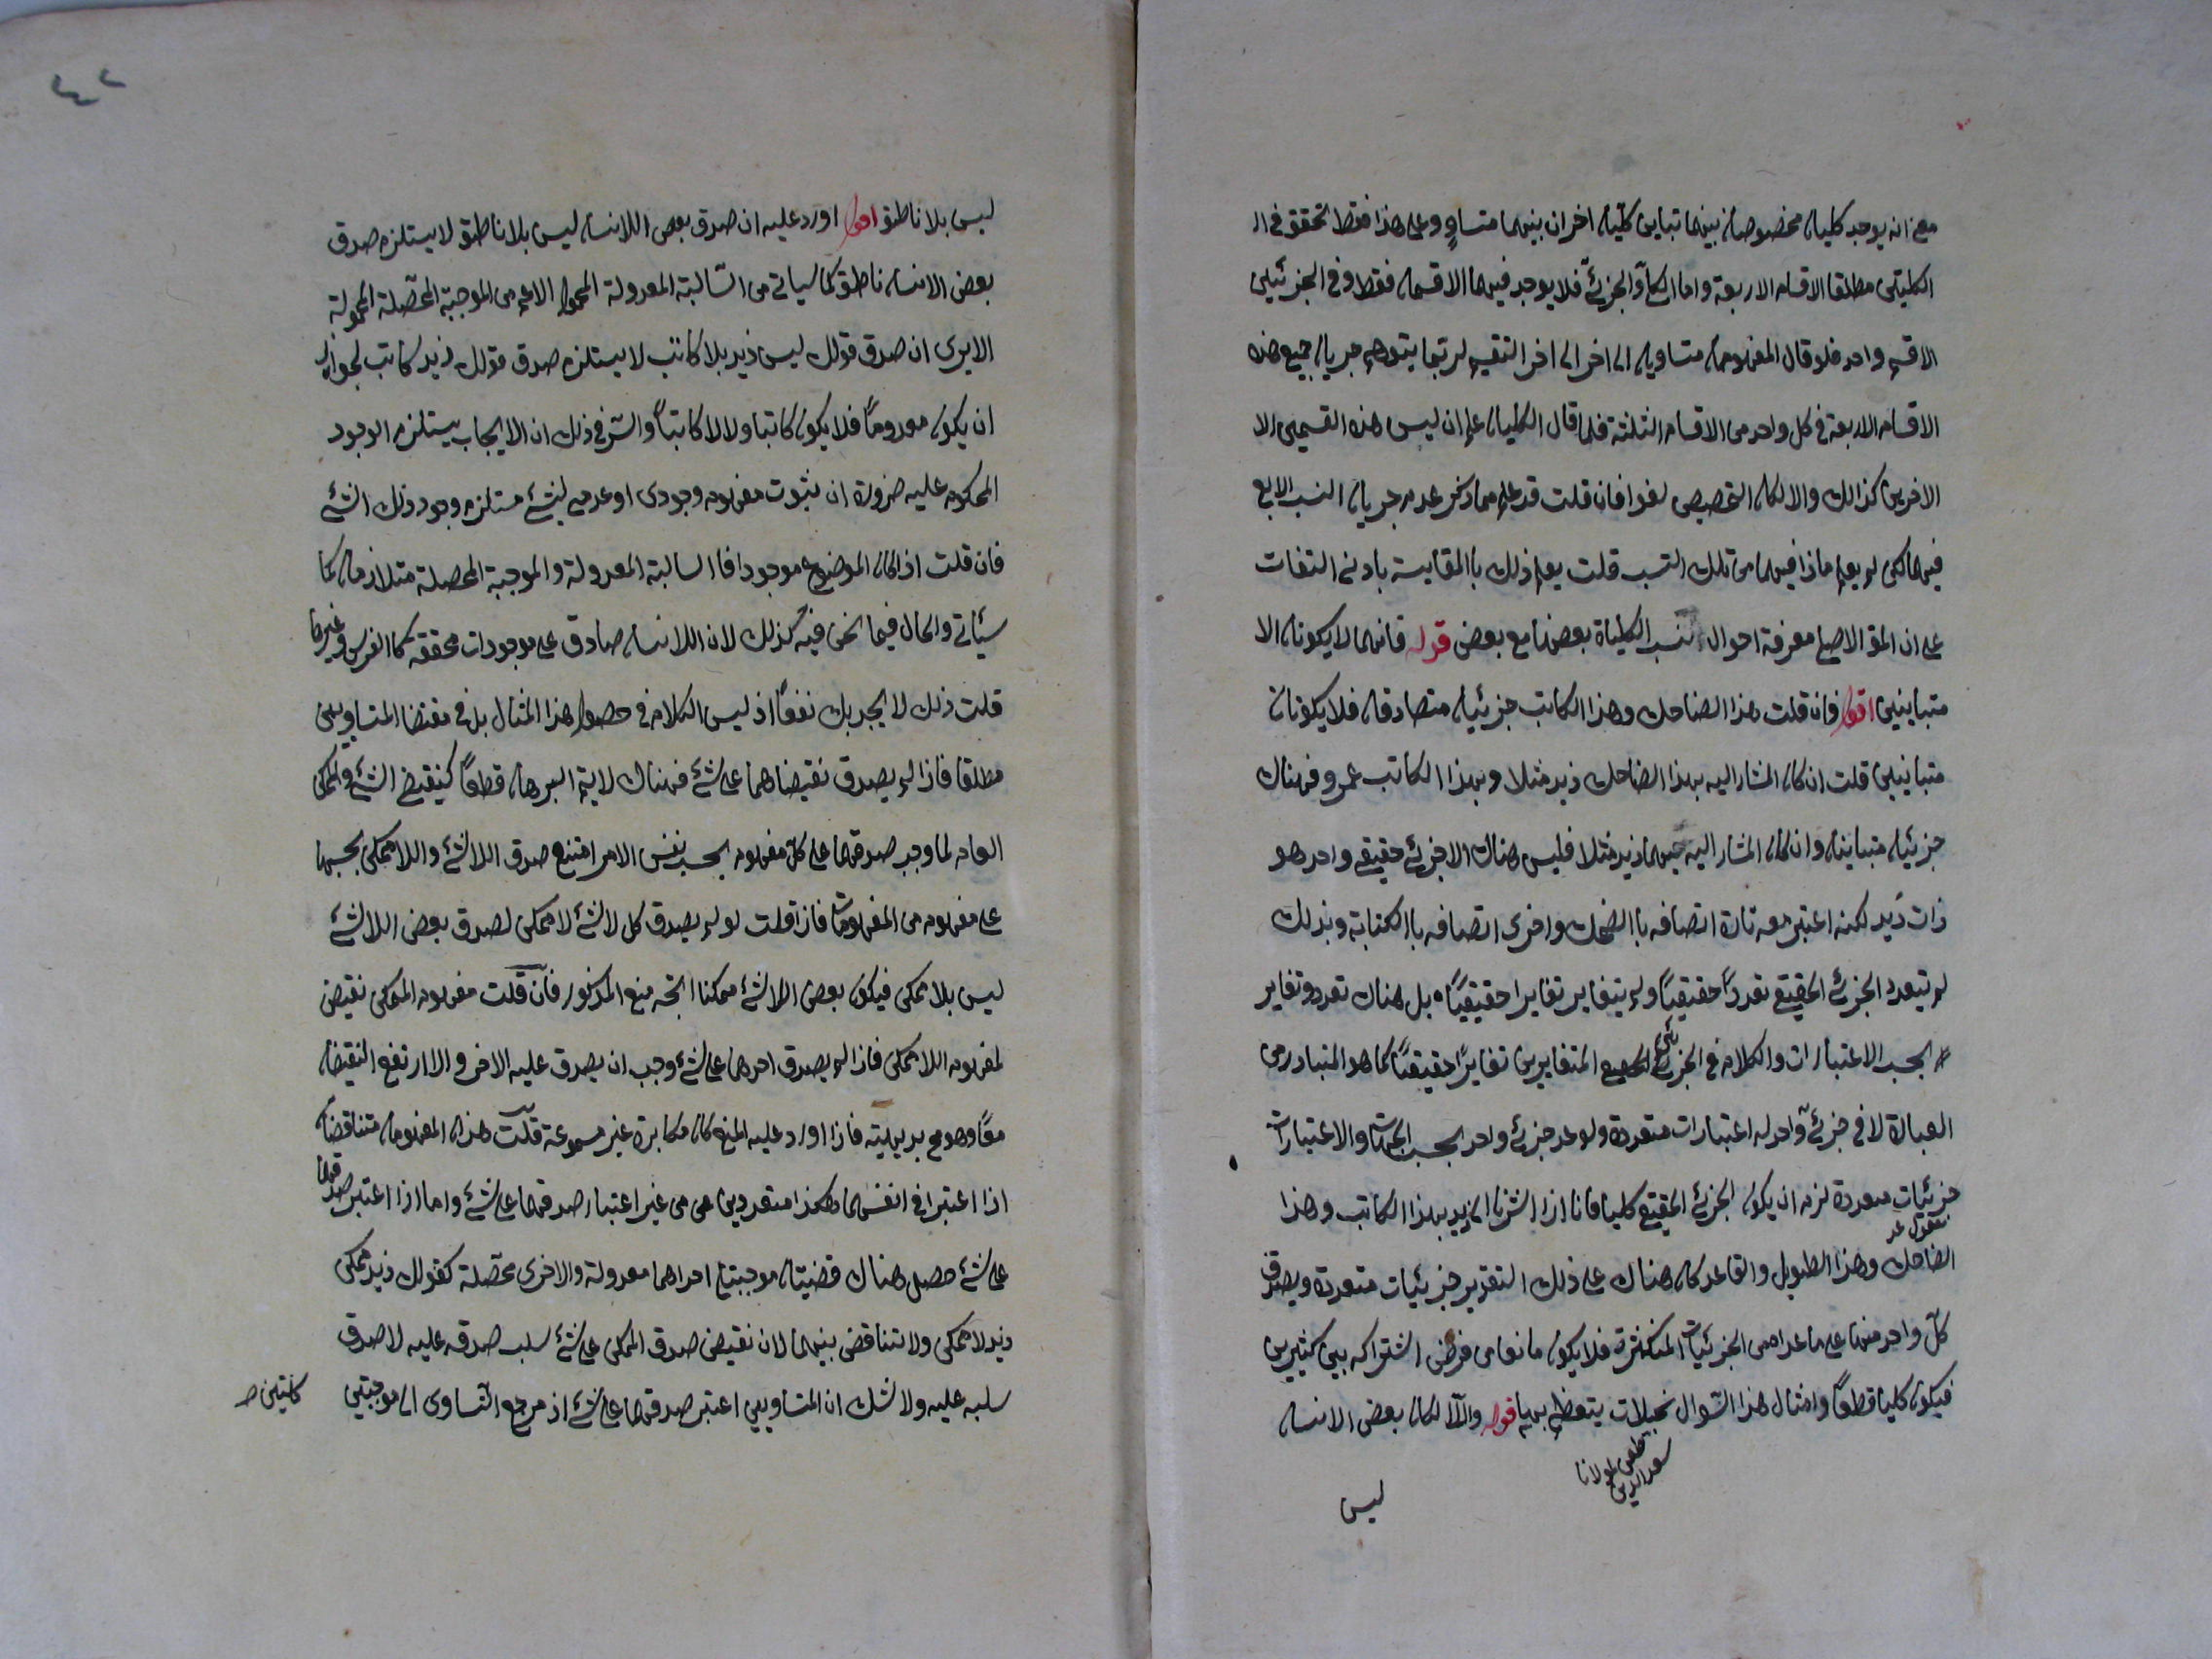 مع انه يوجد كليان مخصوصان بينهما تباين كليان اخران بينهما متساو وعلى هذا فقط تحقق في ال
الكليتين مطلقا الاقسام الاربعة واما الكلي والجزئي فلا يوجد فيهما الا قسمان فقط وفي الجزئيين
الا قسم واحد فلو قال المفهومان متساويان الى اخر الى اخر التقسيم لربما يتوهم جريان جميع هذه
الاقسام الاربعة في كل واحد من الاقسام الثلثة فلما قال الكليان علم ان ليس هذه القسمين الا
الاخرين كذالك والا لكان التخصيص لغوا فان قلت قد علم مما ذكر عدم جريان النسب الاربع
فيهما لكن لم يعلم ماذا فيهما من تلك النسب قلت يعلم ذلك باالمقايسة بادنى التفات
على ان المق الاصلي معرفة احوال نسب الكلياة بعضها مع بعض قوله فانهما لا يكونان الا
متباينين اقول فان قلت هذا الضاحك وهذا الكاتب جزئيان متصادقان فلا يكونان
متباينين قلت ان كان المشار اليه بهذا الضاحك زيد مثلا وبهذا الكاتب عمرو فهناك
جزئيان متباينان وان كان المشار اليه بهما زيد مثلا فليس هناك الا جزئي حقيقي واحد هو
ذات زيد لكنه اعتبر معه تارة اتصافه باالضحك واخرى اتصافه باالكتابة وبذلك
لم تيعدد الجزئي الحقيقي تعددا حقيقيا ولم يتغاير تغايرا حقيقيا بل هناك تعدد وتغاير
بحسب الاعتبارات والكلام في الجزئيين الحقيقي المتغايرين تغايرا حقيقيا كما هو المتبادر من
العبارة لا في جزئي واحد له اعتبارات متعددة ولو عد جزئي واحد بحسب الجهات والاعتبارات
جزئيات متعددة لزم ان يكون الجزئي الحقيقي كليا فانا اذا اشرنا الى زيد بهذا الكاتب وهذا
الضاحك وهذا الطويل والقاعد كان هناك على ذلك التقدير جزئيات متعددة ويصدق
كل واحد منها على ما عداه من الجزئيات المتكثرة فلا يكون مانعا من فرض اشتراكه بين كثيرين
فيكون كليا قطعا وامثال هذا السؤال تخيلات يتعظم بها قوله والا لكان بعض الانسان
مولانا
سعد الدين
ليس
٤٢
ليس بلا ناطق اقول اورد عليه ان صدق بعض اللاانسان ليس بلا ناطق لا يستلزم صدق
بعض الانسان ناطق كما سياتي من السالبة المعدولة المحمول الاعم من الموجبة المحصلة المحمولة
الا يرى ان صدق قولك ليس زيد بلا كاتب لا يستلزم صدق قولك زيد كاتب لجواز
ان يكون معدوما فلا يكون كاتبا ولا لا كاتبا والسر في ذلك ان الايجاب يستلزم الوجود
المحكوم عليه ضرورة ان ثبوت مفهوم وجودى او عدمي لشئ مستلزم وجود ذلك الشئ
فان قلت اذا كان الموضوع موجودا فاالسالبة المعدولة والموجبة المحصلة متلازمان كما
سيأتي والحال فيما نحن فيه كذلك لان اللاانسان صادق على موجودات محققة كاالفرس وغيرها
قلت ذلك لا يجديك نفعا اذ ليس الكلام في حصول هذا المثال بل في مقتضا المتساويين
مطلقا فاذا لم يصدق نقيضاهما على شئ فهناك لا يتم البرهان قطعا كنقيض الشئ والممكن
العام لما وجب صدقهما على كل مفهوم بحسب نفس الامر امتنع صدق اللاشئ واللاممكن بحسبها
على مفهوم من المفهومات فاذا قلت لو لم يصدق كل لاشئ لاممكن لصدق بعض اللاشئ
ليس بلا ممكن فيكون بعض اللاشئ ممكنا اتجه منع المذكور فان قلت مفهوم الممكن نقيض
لمفهوم اللاممكن فاذا لم يصدق احدهما على شئ وجب ان يصدق عليه الاخر والا ارتفع النقيضان
معا وهو مح بديهية فاذا اورد عليه المنع كان مكابرة غير مسموعة قلت هذان المفهومان متناقضان
اذا اعتبرا في انفسهما هكذا متفردين من غير اعتبار صدقهما على شئ واما اذا اعتبر صدقهما
على شئ حصل هناك قضيتان موجبتان احداهما معدولة والاخرى محصلة كقولك زيد ممكن
زيد لاممكن ولا تناقض بينهما لان نقيض صدق الممكن على شئ سلب صدقه عليه لا صدق
سلبه عليه ولا شك ان المتساويين اعتبر صدقهما على شئ اذ مرجع التساوى الى موجبتين
كليتين